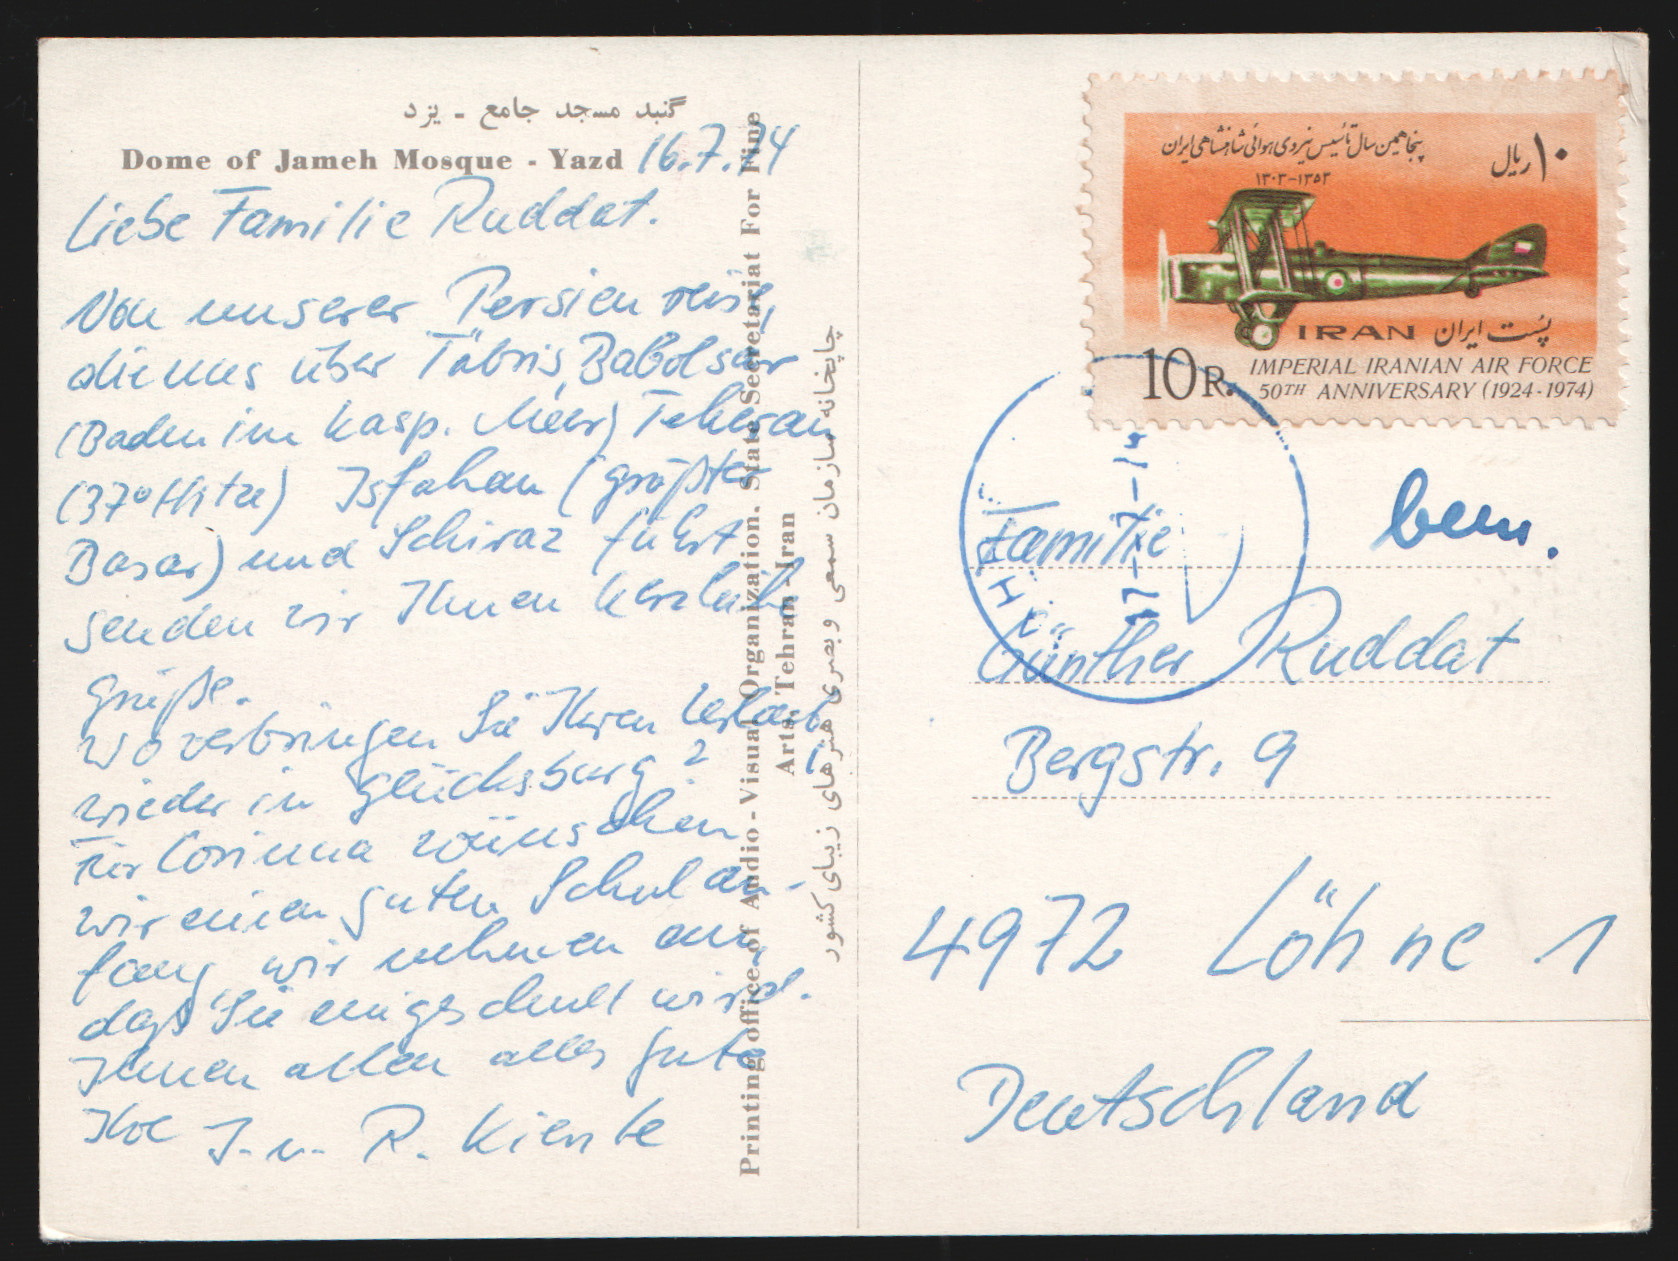 گنبد مسجد جامع - یزد
Dome of Jameh Mosque - Yazd
16.7.74
Liebe Familie Ruddat.
Von unserer Persienreise,
die uns über Täbris, Babolsar
(Baden im Kasp. Meer) Teheran
(37° Hitze) Isfahan (größter
Basar) und Schiraz führt
senden wir Ihnen herzliche
Grüße.
Wo verbringen Sie Ihren Urlaub
wieder in Glücksburg?
Für Corinna wünschen
wir einen guten Schulan-
fang, wir nehmen an,
daß Sie eingeschult wird.
Ihnen allen alles Gute
Ihre J. u. R. Kienke
Printing office of Audio-Visual Organization. State Secretariat For Fine
Arts Tehran-Iran
چاپخانه سازمان سمعی و بصری هنرهای زیبای کشور
پنجاهمین سال تأسیس نیروی هوائی شاهنشاهی ایران
۱۳۰۳-۱۳۵۳
۱۰ ریال
IRAN پست ایران
10 R.
IMPERIAL IRANIAN AIR FORCE
50TH ANNIVERSARY (1924-1974)
17-7-14
Familie
bem.
Günther Ruddat
Bergstr. 9
4972 Löhne 1
Deutschland